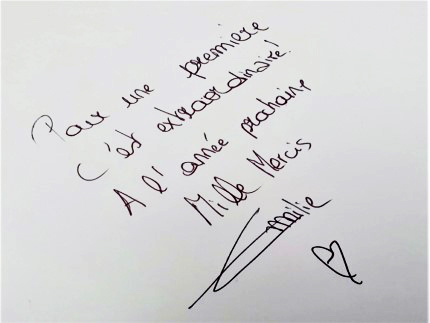 Pour une première
C'est extraordinaire!
A l'année prochaine
Mille Mercis
Emilie